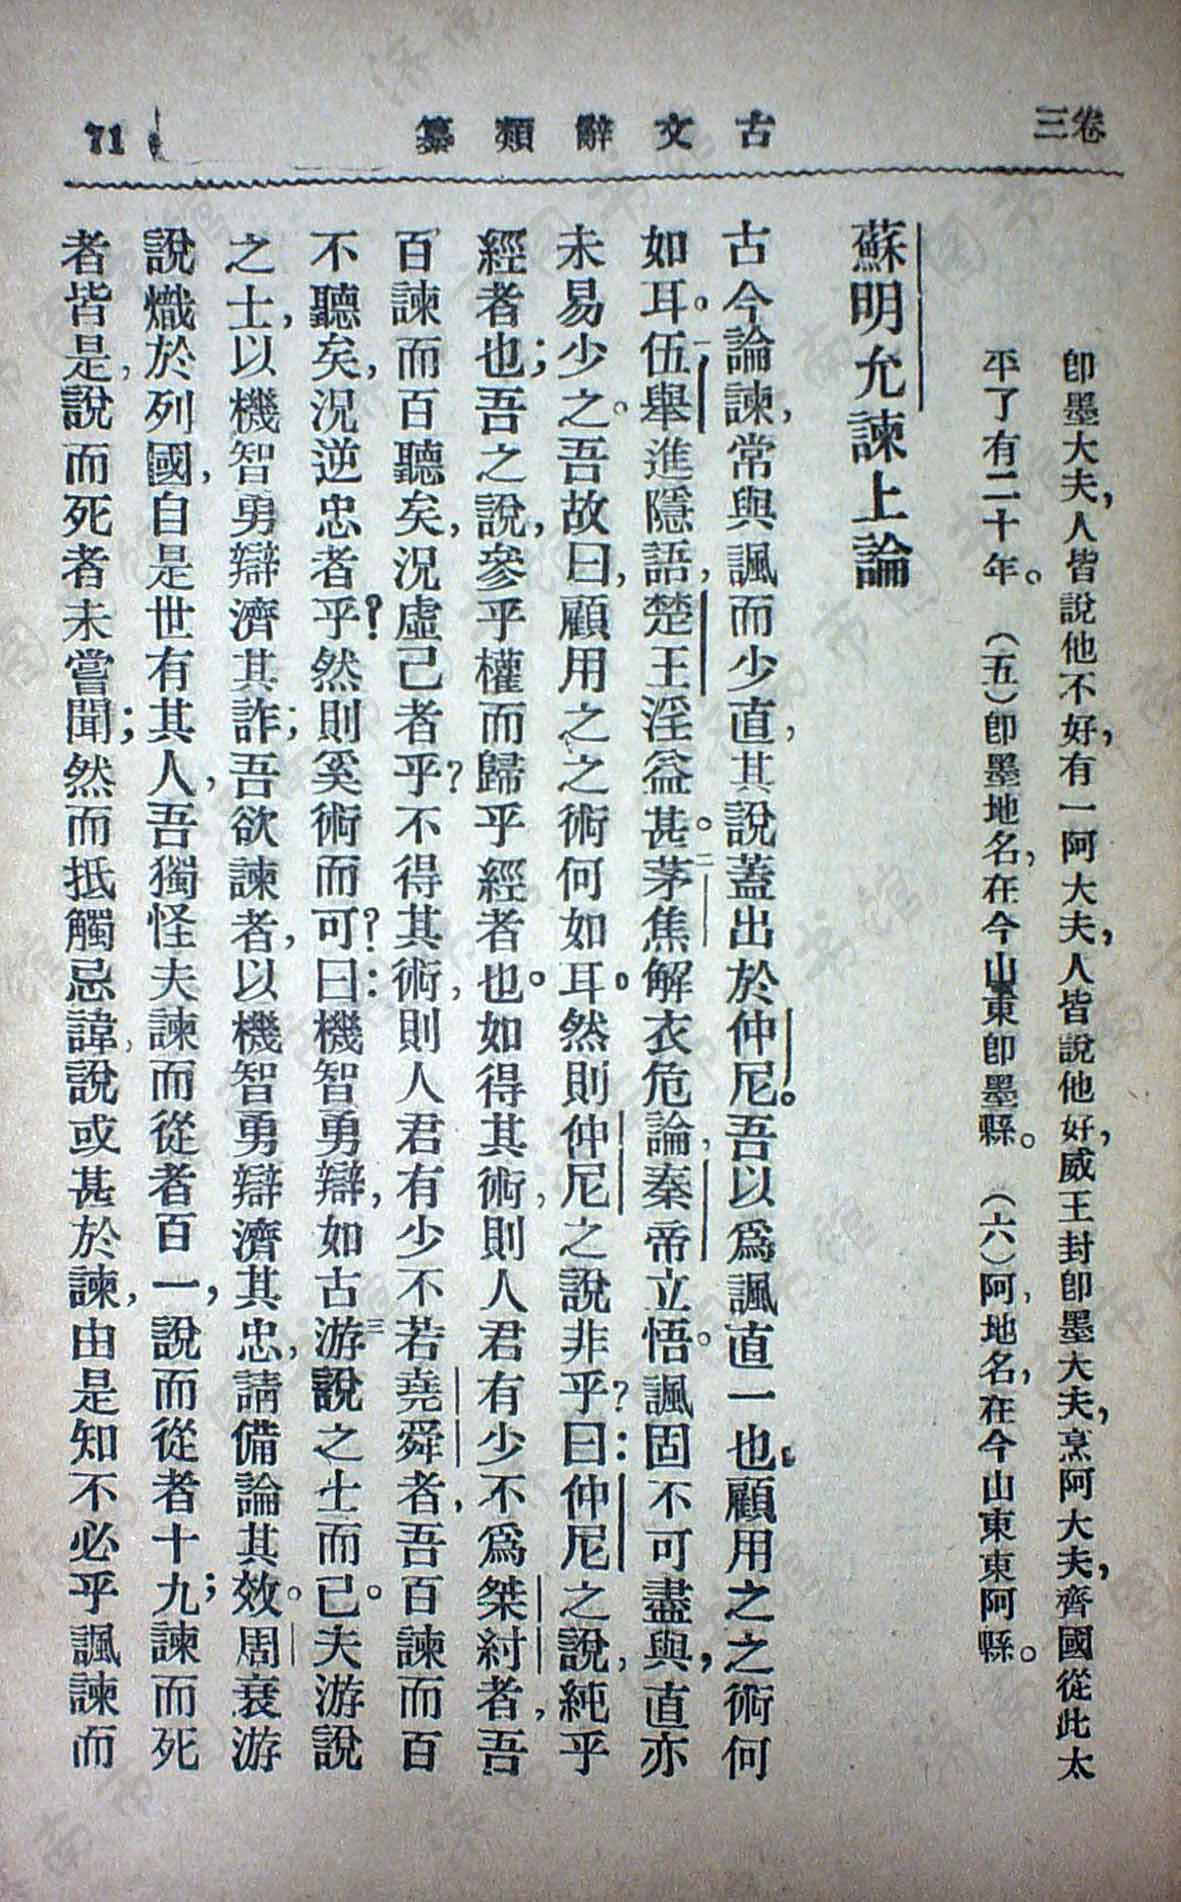 卷三
古文辭類纂
71
即墨大夫,人皆說他不好,有一阿大夫,人皆說他好,威王封即墨大夫,烹阿大夫,齊國從此太
平了有二十年。　(五)即墨地名,在今山東即墨縣。　(六)阿,地名,在今山東東阿縣。
蘇明允諫上論
古今論諫,常與諷而少直,其說蓋出於仲尼。吾以爲諷直一也,顧用之之術何
如耳。伍舉一進隱語,楚王淫益甚。茅焦二解衣危論,秦帝立悟。諷固不可盡與,直亦
未易少之。吾故曰,顧用之之術何如耳。然則仲尼之說非乎?曰:仲尼之說,純乎
經者也;吾之說,參乎權而歸乎經者也。如得其術,則人君有少不爲桀紂者,吾
百諫而百聽矣,況虛己者乎?不得其術,則人君有少不若堯舜者,吾百諫而百
不聽矣,況逆忠者乎?然則奚術而可?曰:機智勇辯,如古游三說之士而已。夫游說
之士,以機智勇辯濟其詐;吾欲諫者,以機智勇辯濟其忠,請備論其效。周衰游
說熾於列國,自是世有其人,吾獨怪夫諫而從者百一,說而從者十九;諫而死
者皆是,說而死者未嘗聞;然而抵觸忌諱,說或甚於諫,由是知不必乎諷諫而